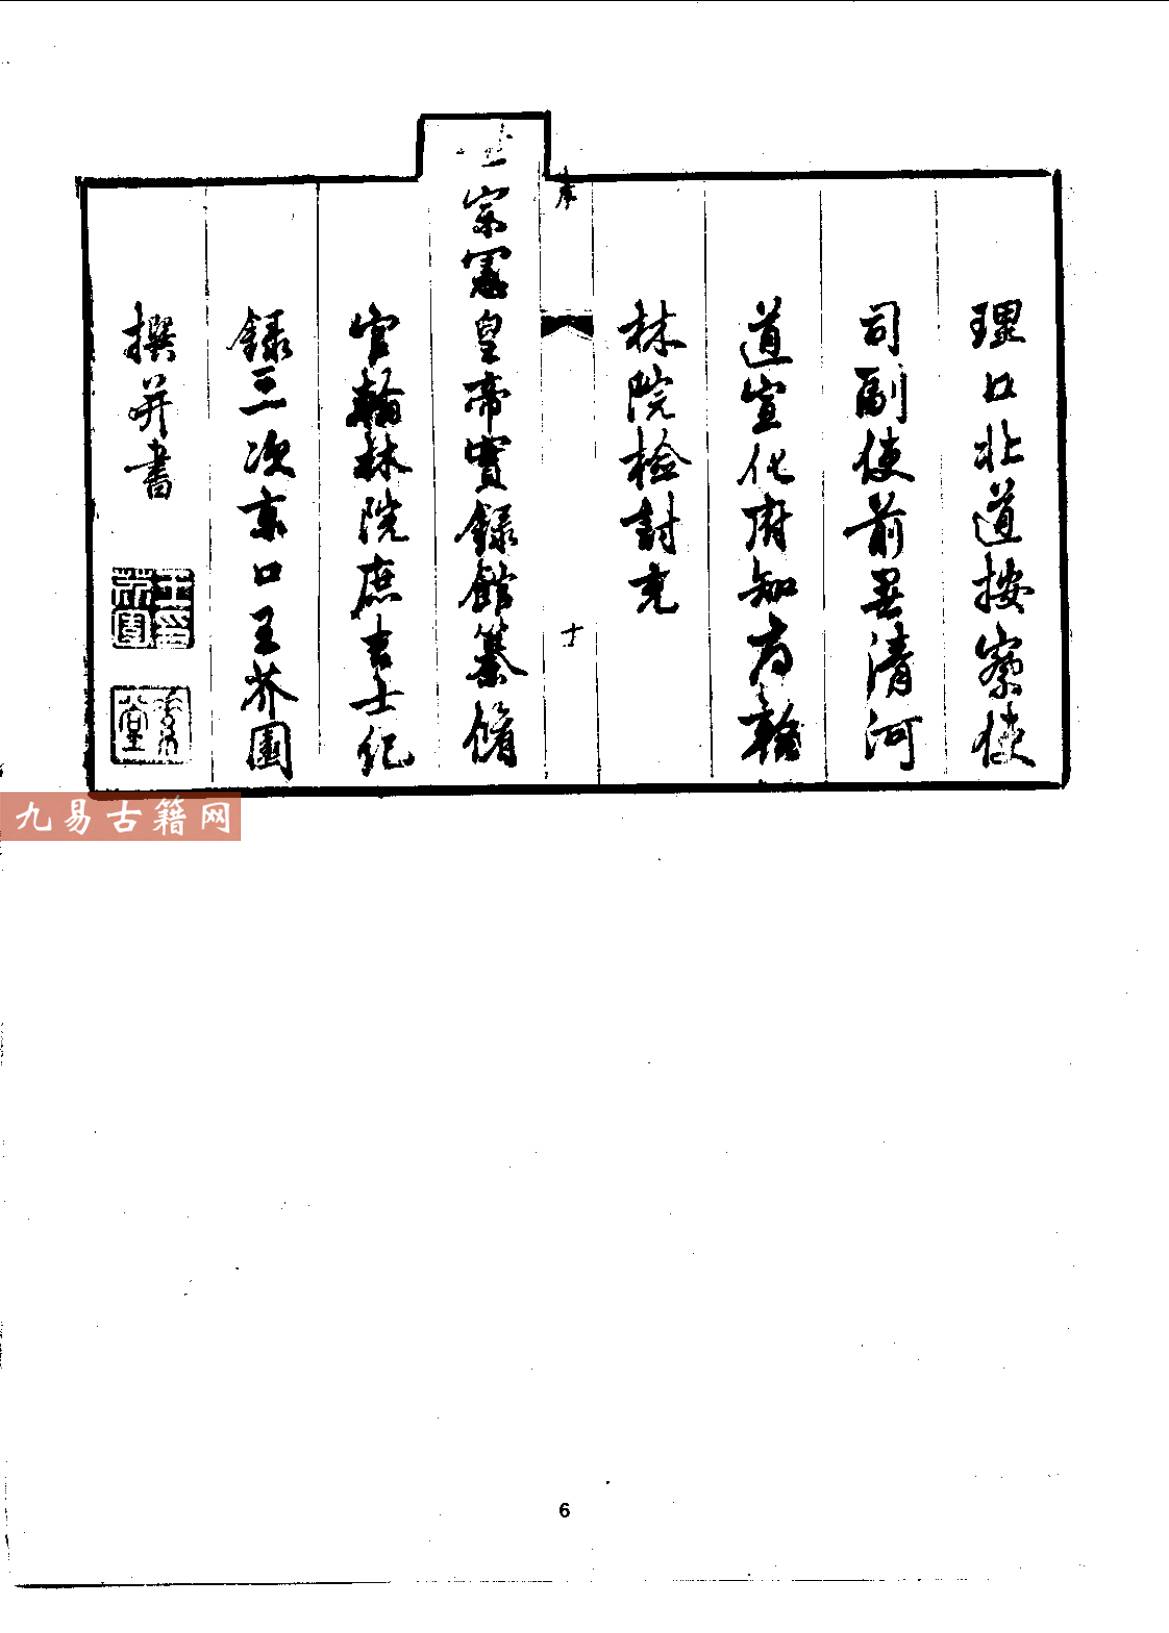 理口北道按察使
司副使前署清河
道宣化府知府翰
林院檢討充
序
十
世宗憲皇帝實錄館纂脩
官翰林院庶吉士紀
錄三次京口王芥園
撰并書
王芥園
堂
九易古籍网
6